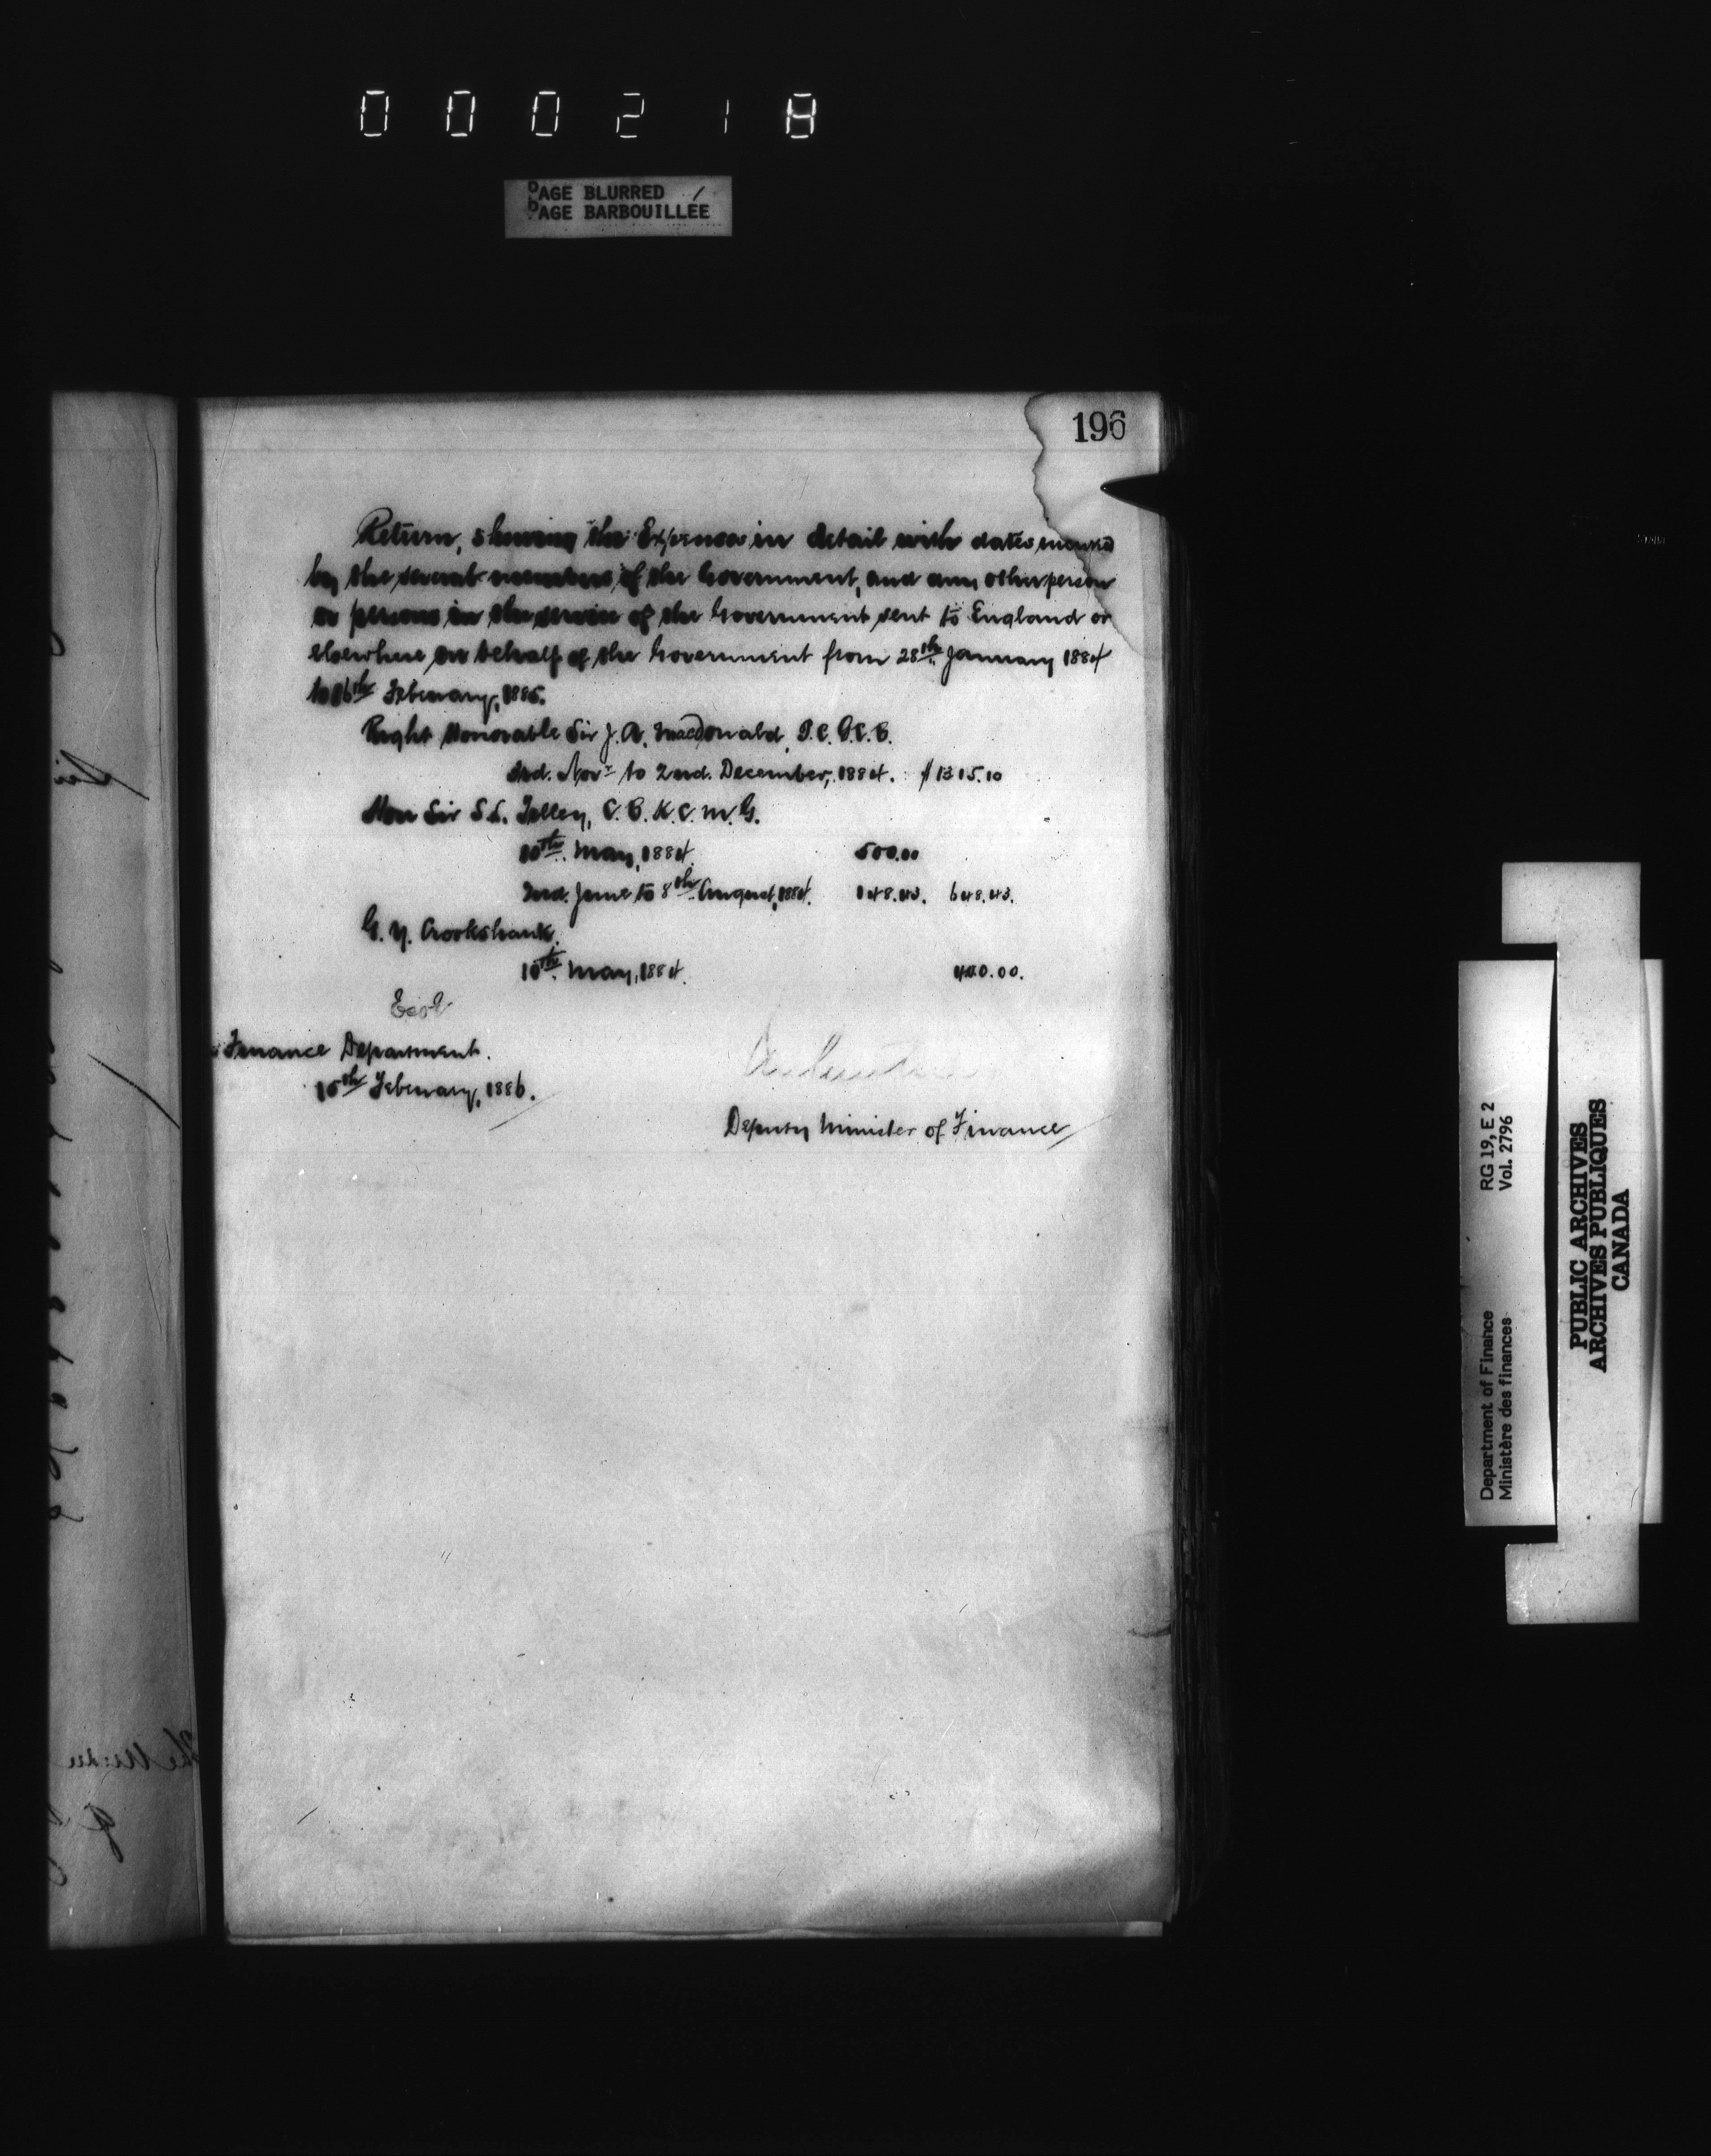 000218
PAGE BLURRED
PAGE BARBOUILLÉE
196
Return, shewing the Expenses in detail with dates incurred
by the several members of the Government, and any other person
or persons in the service of the Government sent to England or
elsewhere on behalf of the Government from 28th January 1884
to 16th February, 1885.
Right Honorable Sir J. A. MacDonald, P.C. G.C.B.
3rd. Novr to 2nd. December, 1884. $1315.10
Hon Sir S. L. Tilley, C.B. K.C.M.G.
10th May, 1884 500.00
2nd. June to 8th August, 1884. 148.43. 648.43.
G. Y. Crookshank.
10th May, 1884. 440.00.
Finance Department.
15th February, 1886.
Deputy Minister of Finance
Department of Finance RG 19, E 2
Ministère des finances Vol. 2796
PUBLIC ARCHIVES
ARCHIVES PUBLIQUES
CANADA